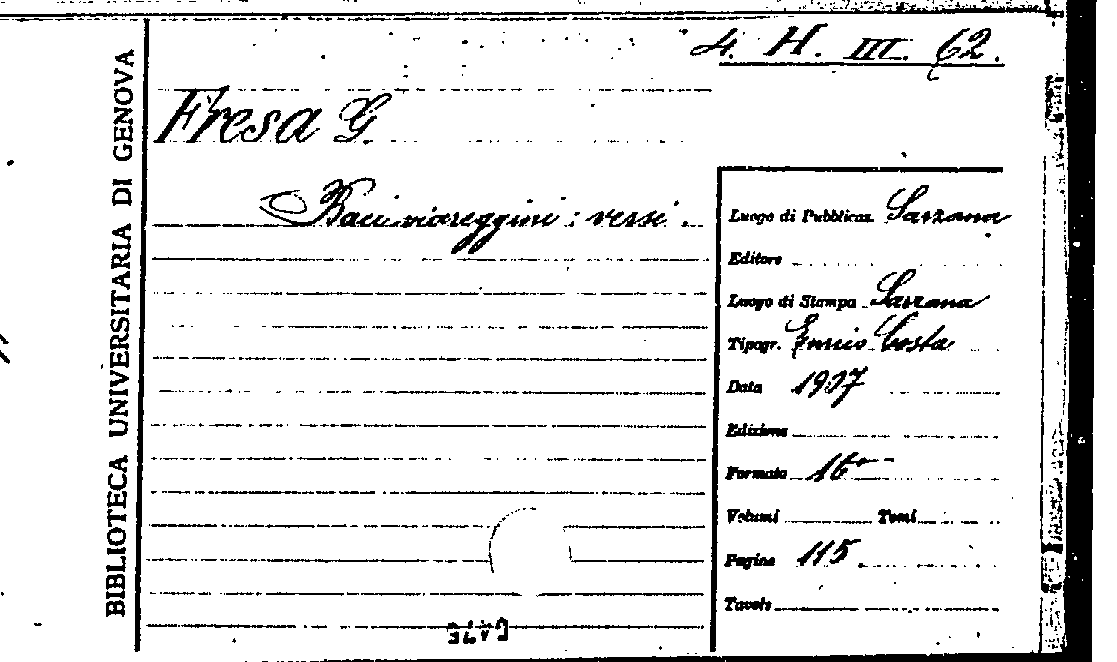 4. H. III. 62.
Fresa G.
Baci viareggini: versi.
BIBLIOTECA UNIVERSITARIA DI GENOVA
Luogo di Pubblicaz. Sarzana
Editore
Luogo di Stampa Sarzana
Tipogr. Ennio Costa
Data 1907
Edizione
Formato 16°
Volumi Tomi
Pagine 115
Tavole